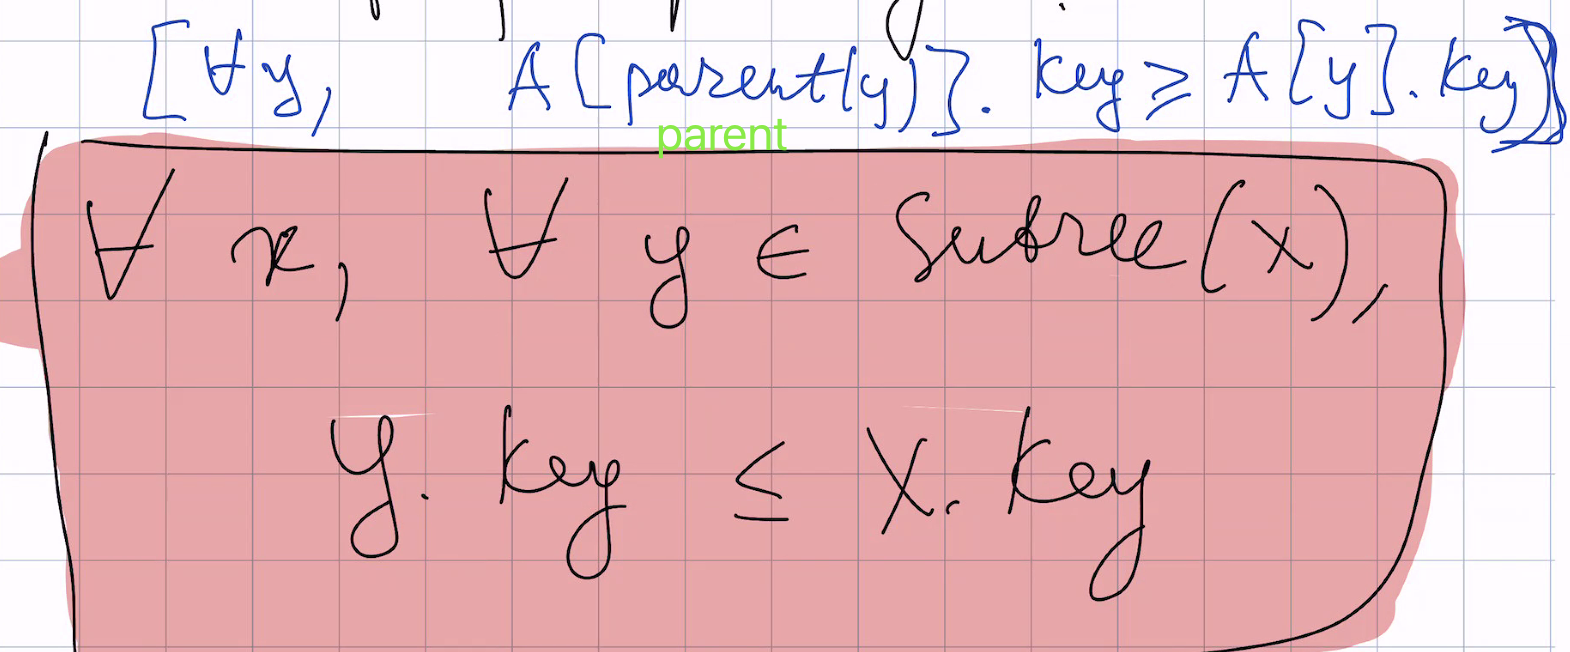 [∀y, A[parent(y)].key ≥ A[y].key]
parent
∀ x, ∀ y ∈ Subtree(x),
y.key ≤ x.key